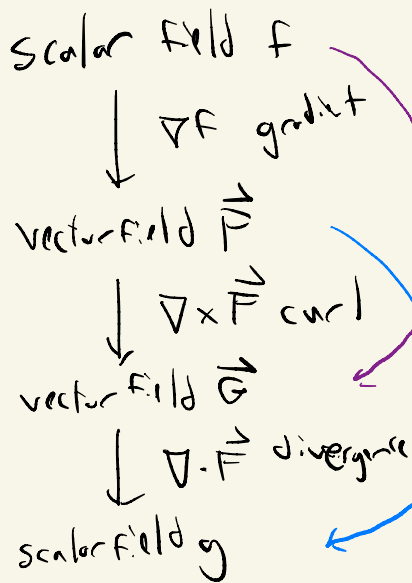 scalar field f
∇f gradient
vector field F⃗
∇ × F⃗ curl
vector field G⃗
∇ · F⃗ divergence
scalar field g